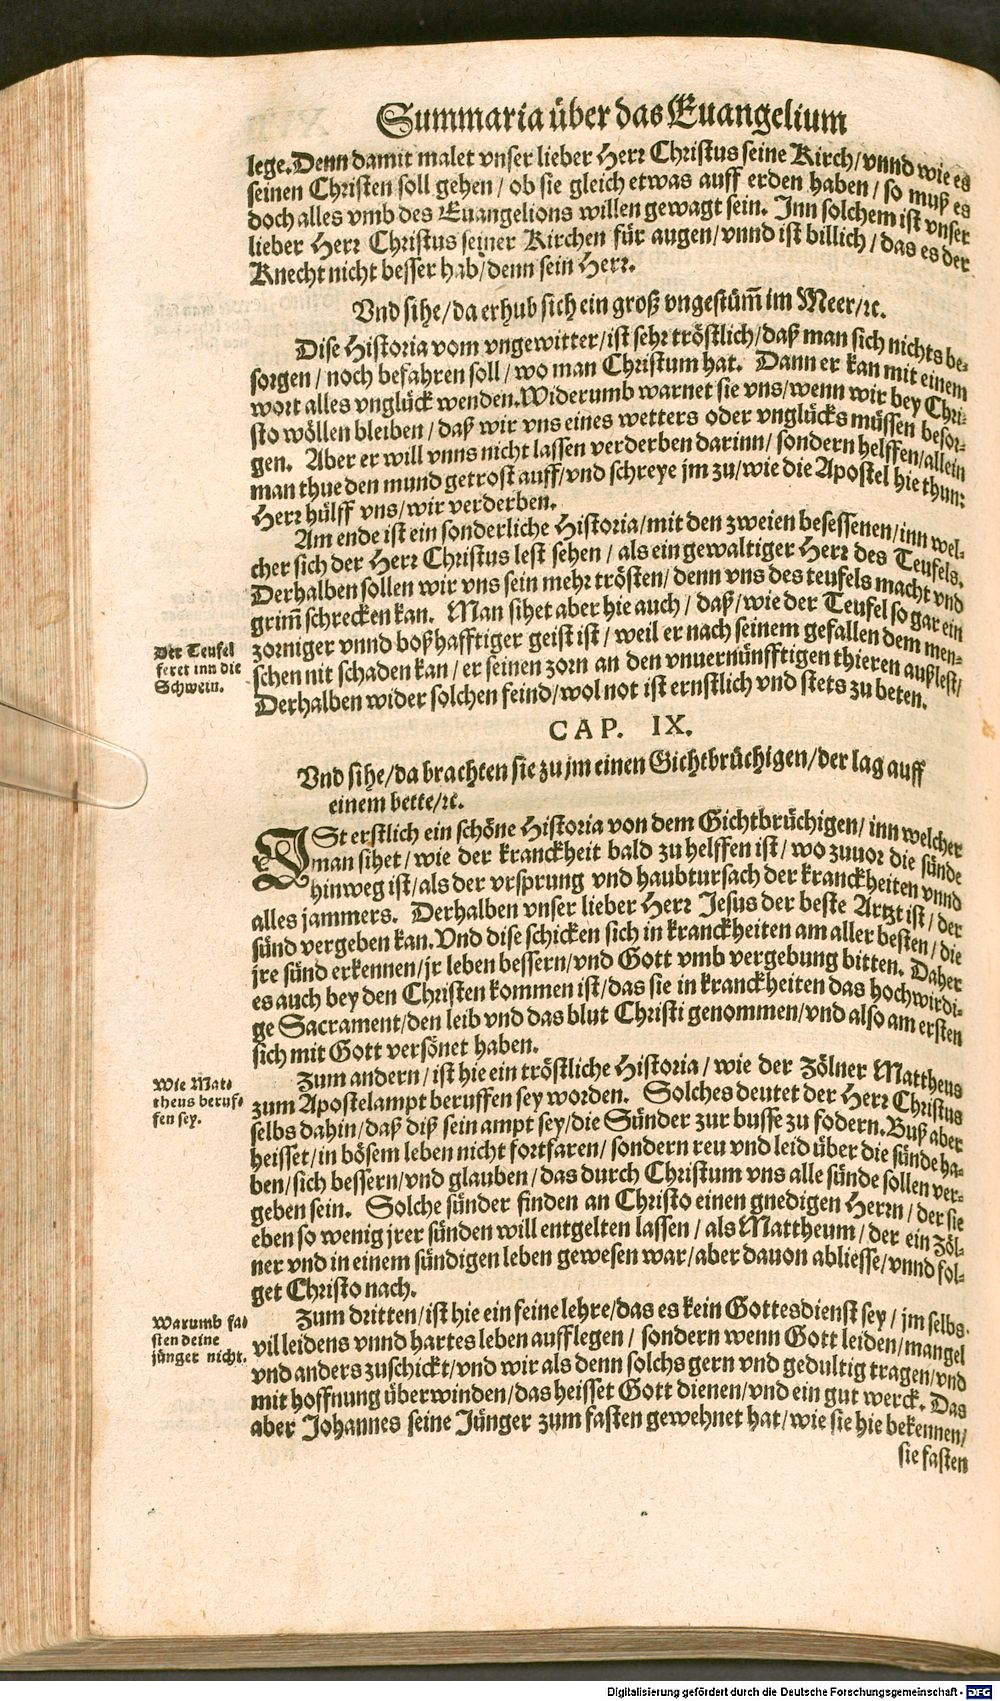 Summaria über das Euangelium
lege. Denn damit malet vnser lieber Herr Christus seine Kirch/ vnnd wie es
seinen Christen soll gehen / ob sie gleich etwas auff erden haben / so muß es
doch alles vmb des Euangelions willen gewagt sein. Inn solchem ist vnser
lieber Herr Christus seiner Kirchen für augen/ vnnd ist billich / das es der
Knecht nicht besser hab/ denn sein Herr.
Vnd sihe/ da erhub sich ein groß vngestüm̃ im Meer/ ꝛc.
Dise Historia vom vngewitter/ ist sehr tröstlich/ daß man sich nichts be-
sorgen / noch befahren soll / wo man Christum hat. Dann er kan mit einem
wort alles vnglück wenden. Widerumb warnet sie vns/ wenn wir bey Chri-
sto wöllen bleiben / daß wir vns eines wetters oder vnglücks müssen besor-
gen. Aber er will vnns nicht lassen verderben darinn/ sondern helffen/ allein
man thue den mund getrost auff/ vnd schreye jm zu/ wie die Apostel hie thun:
Herr hülff vns/ wir verderben.
Am ende ist ein sonderliche Historia/ mit den zweien besessenen/ inn wel-
cher sich der Herr Christus lest sehen / als ein gewaltiger Herr des Teufels.
Derhalben sollen wir vns sein mehr trösten/ denn vns des teufels macht vnd
grim̃ schrecken kan. Man sihet aber hie auch / daß/ wie der Teufel so gar ein
zorniger vnnd boßhafftiger geist ist / weil er nach seinem gefallen dem men-
schen nit schaden kan / er seinen zorn an den vnuernünfftigen thieren außlest/
Derhalben wider solchen feind/ wol not ist ernstlich vnd stets zu beten.
Der Teufel
feret inn die
Schwein.
CAP. IX.
Vnd sihe/ da brachten sie zu jm einen Gichtbrüchigen/ der lag auff
einem bette/ ꝛc.
ISt erstlich ein schöne Historia von dem Gichtbrüchigen/ inn welcher
man sihet/ wie der kranckheit bald zu helffen ist / wo zuuor die sünde
hinweg ist/ als der vrsprung vnd haubtursach der kranckheiten vnnd
alles jammers. Derhalben vnser lieber Herr Jesus der beste Artzt ist / der
sünd vergeben kan. Vnd dise schicken sich in kranckheiten am aller besten / die
jre sünd erkennen/ jr leben bessern/ vnd Gott vmb vergebung bitten. Daher
es auch bey den Christen kommen ist/ das sie in kranckheiten das hochwirdi-
ge Sacrament/ den leib vnd das blut Christi genommen/ vnd also am ersten
sich mit Gott versönet haben.
Zum andern / ist hie ein tröstliche Historia / wie der Zölner Mattheus
zum Apostelampt beruffen sey worden. Solches deutet der Herr Christus
selbs dahin/ daß diß sein ampt sey/ die Sünder zur busse zu fodern. Buß aber
heisset/ in bösem leben nicht fortfaren/ sondern reu vnd leid über die sünde ha-
ben/ sich bessern/ vnd glauben / das durch Christum vns alle sünde sollen ver-
geben sein. Solche sünder finden an Christo einen gnedigen Herrn / der sie
eben so wenig jrer sünden will entgelten lassen / als Mattheum / der ein Zöl-
ner vnd in einem sündigen leben gewesen war/ aber dauon abliesse/ vnnd fol-
get Christo nach.
Wie Mat-
theus beruf-
fen sey.
Zum dritten/ ist hie ein feine lehre/ das es kein Gottesdienst sey / jm selbs
vil leidens vnnd hartes leben aufflegen / sondern wenn Gott leiden/ mangel
vnd anders zuschickt/ vnd wir als denn solchs gern vnd gedultig tragen/ vnd
mit hoffnung überwinden/ das heisset Gott dienen/ vnd ein gut werck. Das
aber Johannes seine Jünger zum fasten gewehnet hat/ wie sie hie bekennen/
Warumb fa-
sten deine
jünger nicht.
sie fasten
Digitalisierung gefördert durch die Deutsche Forschungsgemeinschaft - DFG